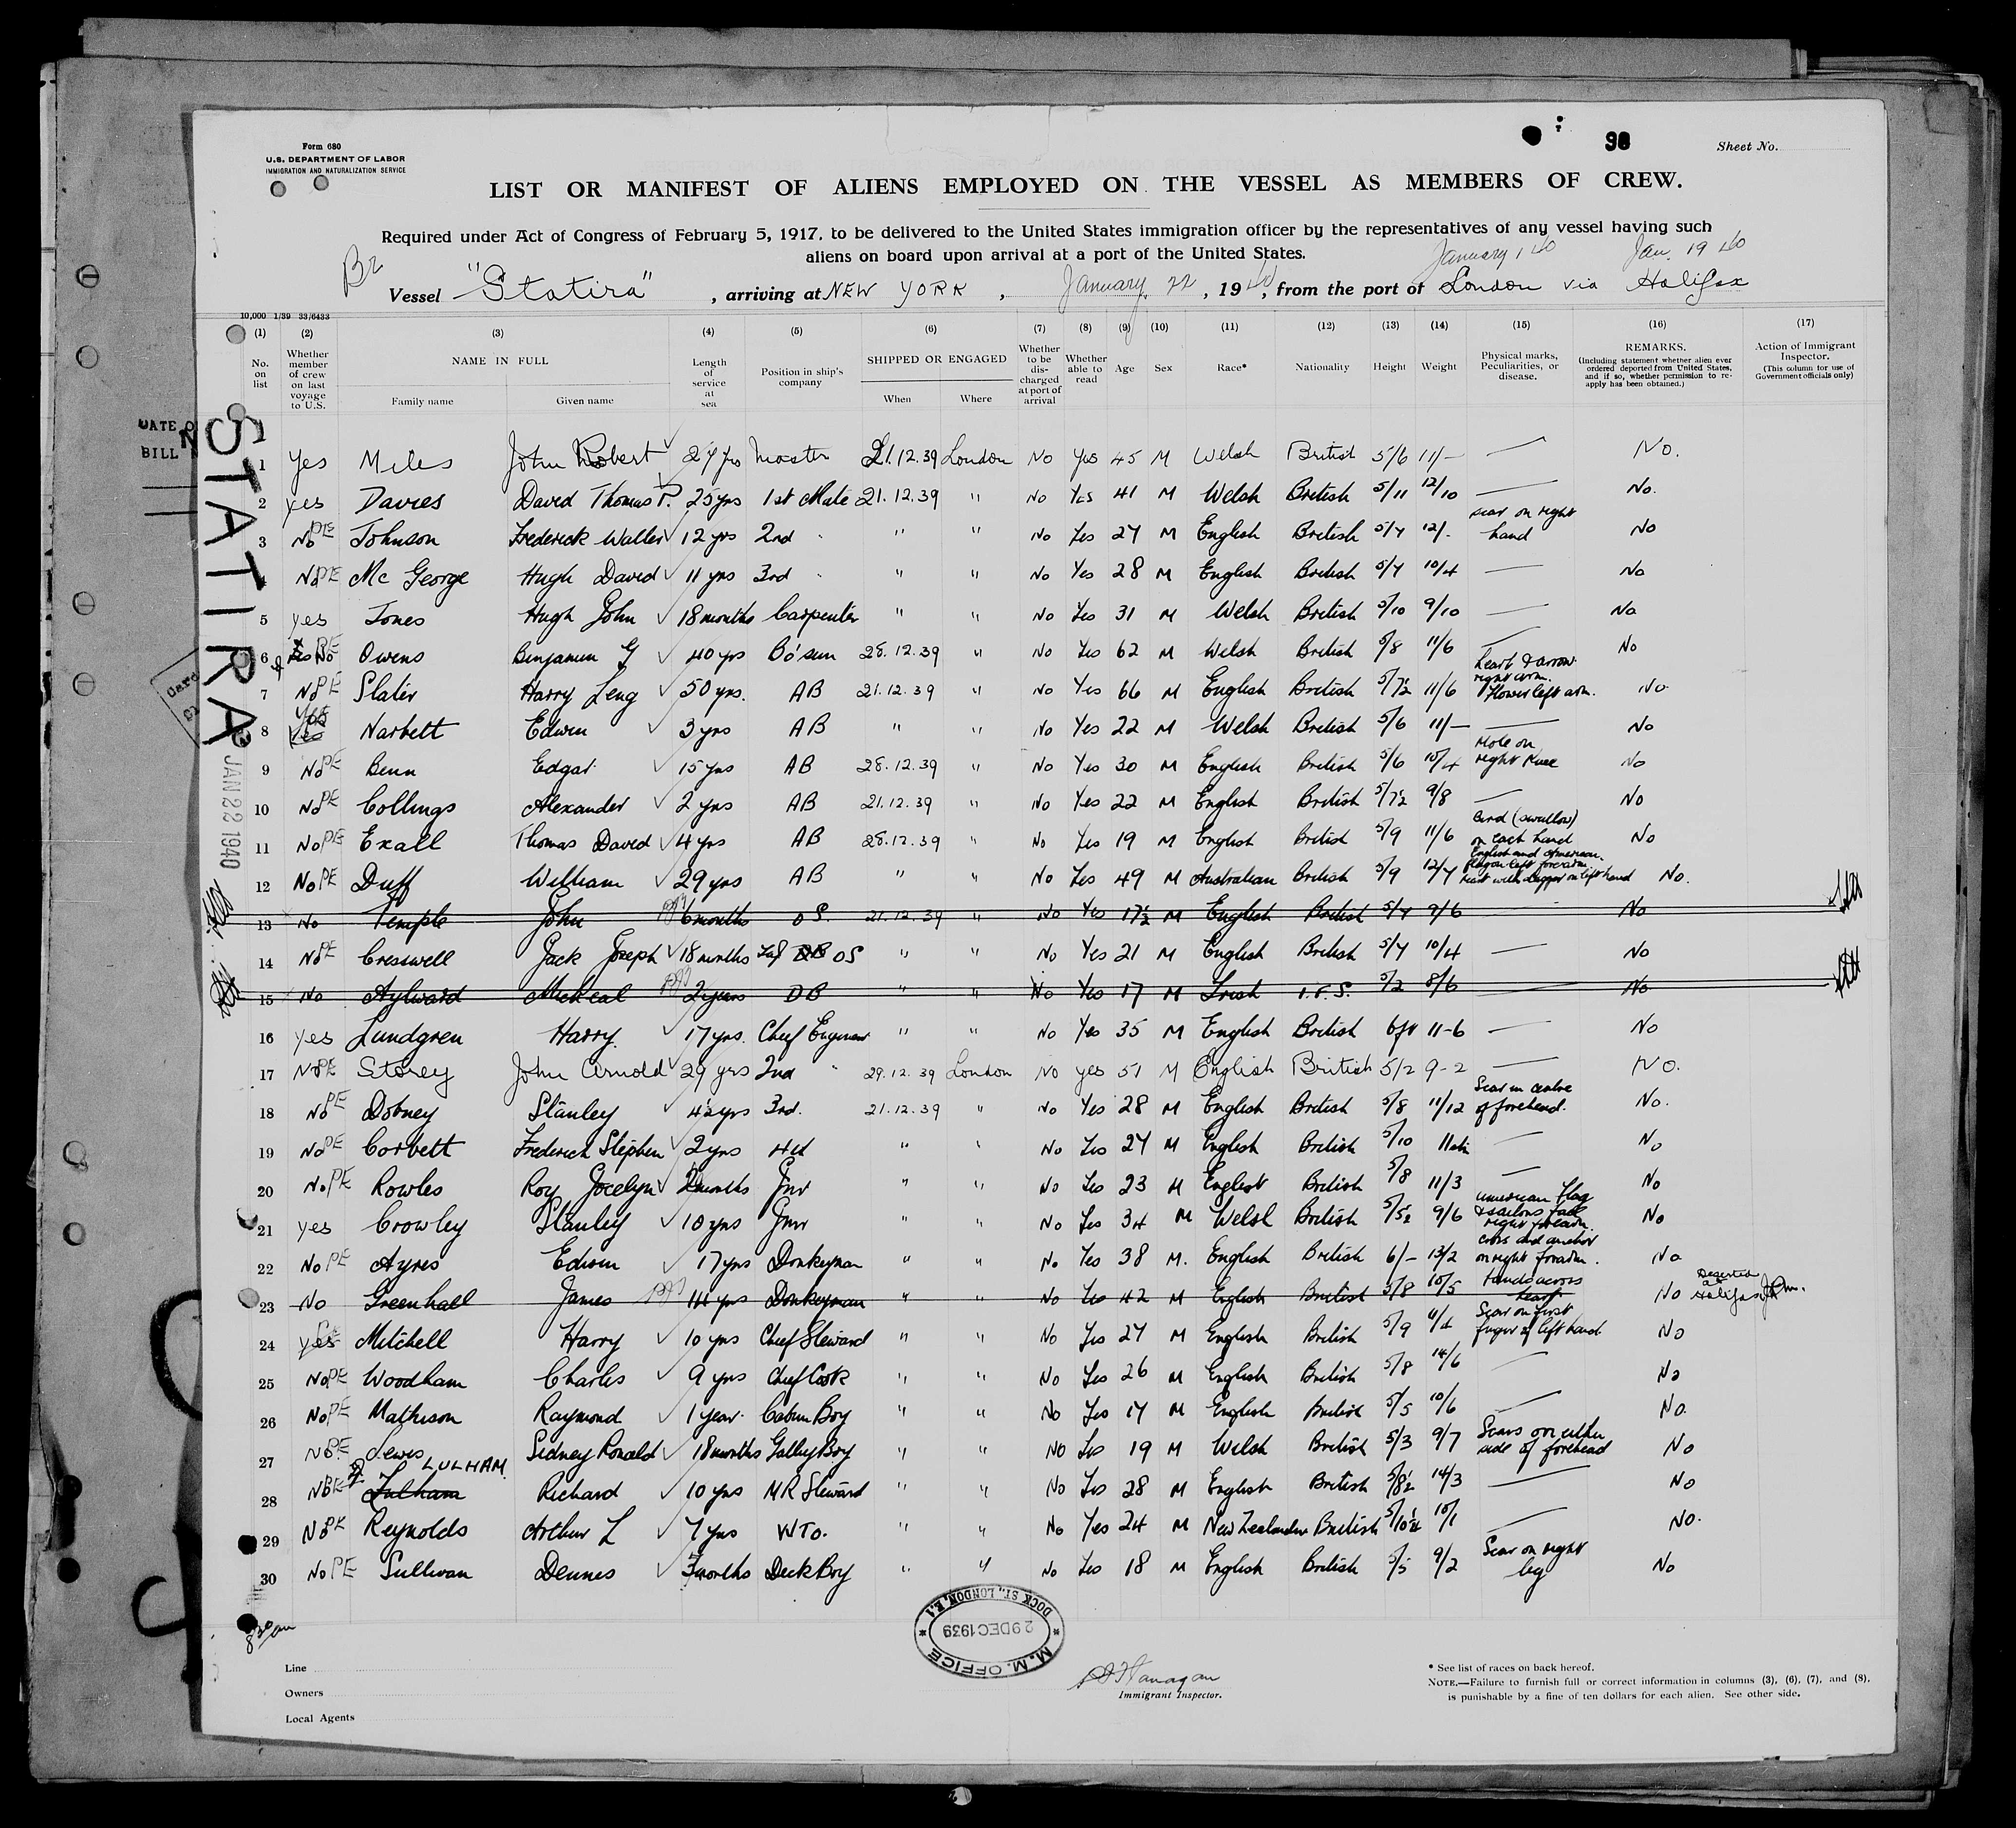 Form 680
U.S. DEPARTMENT OF LABOR
IMMIGRATION AND NATURALIZATION SERVICE
98
Sheet No.
LIST OR MANIFEST OF ALIENS EMPLOYED ON THE VESSEL AS MEMBERS OF CREW.
Required under Act of Congress of February 5, 1917, to be delivered to the United States immigration officer by the representatives of any vessel having such
aliens on board upon arrival at a port of the United States.
January 1 40 Jan. 19 40
Br Vessel "Statira", arriving at NEW YORK, January 22, 1940, from the port of London via Halifax
10,000 1/39 33/6433
(1) (2) (3) (4) (5) (6) (7) (8) (9) (10) (11) (12) (13) (14) (15) (16) (17)
No. on list
Whether member of crew on last voyage to U.S.
NAME IN FULL
Family name Given name
Length of service at sea
Position in ship's company
SHIPPED OR ENGAGED
When Where
Whether to be discharged at port of arrival
Whether able to read
Age Sex Race* Nationality Height Weight
Physical marks, Peculiarities, or disease.
REMARKS.
(Including statement whether alien ever ordered deported from United States, and if so, whether permission to re-apply has been obtained.)
Action of Immigrant Inspector.
(This column for use of Government officials only)
DATE O
BILL N
STATIRA
JAN 22 1940
1 Yes Miles John Robert 27 yrs Master 21.12.39 London No Yes 45 M Welsh British 5/6 11/- — No.
2 yes Davies David Thomas P. 25 yrs 1st Mate 21.12.39 " No Yes 41 M Welsh British 5/11 12/10 — No.
3 No PE Johnson Frederick Walter 12 yrs 2nd " " " No Yes 27 M English British 5/7 12/- scar on right hand No
No PE Mc George Hugh David 11 yrs 3rd " " " No Yes 28 M English British 5/7 10/4 — No
5 yes Jones Hugh John 18 months Carpenter " " No Yes 31 M Welsh British 5/10 9/10 — No
6 No PE Owens Benjamin G 40 yrs Bo'sun 28.12.39 " No Yes 62 M Welsh British 5/8 11/6 — No
7 No PE Slater Harry Leng 50 yrs. AB 21.12.39 " No Yes 66 M English British 5/7½ 11/6 heart & arrow right arm. Flower left arm. No
8 Yes Narbett Edwin 3 yrs AB " " No Yes 22 M Welsh British 5/6 11/- — No
9 No PE Benn Edgar 15 yrs AB 28.12.39 " No Yes 30 M English British 5/6 10/4 Mole on right knee No
10 No PE Collings Alexander 2 yrs AB 21.12.39 " No Yes 22 M English British 5/7½ 9/8 — No
11 No PE Exall Thomas David 4 yrs AB 28.12.39 " No Yes 19 M English British 5/9 11/6 Bird (swallow) on each hand No
12 No PE Duff William 29 yrs AB " " No Yes 49 M Australian British 5/9 12/7 English and American Flag on left forearm heart with dagger on left hand No.
13 No Temple John 6 months OS. 21.12.39 " No Yes 17½ M English British 5/7 9/6 — No
14 No PE Cresswell Jack Joseph 18 months OS " " No Yes 21 M English British 5/7 10/4 — No
15 No Aylward Micheal 2 years DB " " No Yes 17 M Irish I.F.S. 5/2 8/6 — No
16 yes Lundgren Harry 17 yrs. Chief Engineer " " No Yes 35 M English British 6ft 11-6 — No
17 No PE Storey John Arnold 29 yrs 2nd " 29.12.39 London No yes 51 M English British 5/2 9-2 — No.
18 No PE Dobney Stanley 4½ yrs 3rd. 21.12.39 " No Yes 28 M English British 5/8 11/12 Scar in centre of forehead. No.
19 No PE Corbett Frederick Stephen 2 yrs 4th " " No Yes 27 M English British 5/10 — No
20 No PE Rowles Roy Jocelyn months Jnr " " No Yes 23 M English British 5/8 11/3 — No
21 yes Crowley Stanley 10 yrs Jnr " " No Yes 34 M Welsh British 5/5½ 9/6 American Flag & sailors face right forearm. No
22 No PE Ayres Edwin 17 yrs Donkeyman " " No Yes 38 M. English British 6/- 13/2 cross and anchor on right forearm. No
23 No Greenhall James 14 yrs Donkeyman " " No Yes 42 M English British 5/8 10/5 hands across heart No Deserted at Halifax
24 yes Mitchell Harry 10 yrs Chief Steward " " No Yes 27 M English British 5/9 11/4 Scar on first finger of left hand No
25 No PE Woodham Charles 9 yrs Chief Cook " " No Yes 26 M English British 5/8 14/6 — No
26 No PE Mathison Raymond 1 year. Cabin Boy " " No Yes 17 M English British 5/5 10/6 — No.
27 No PE Lewis Sidney Ronald 18 months Galley Boy " " No Yes 19 M Welsh British 5/3 9/7 Scars on either side of forehead No
LULHAM.
28 No PE Lulham Richard 10 yrs MR Steward " " No Yes 28 M English British 5/8½ 14/3 — No
29 No PE Reynolds Arthur L 7 yrs WTO. " " No Yes 24 M New Zealander British 5/10½ 10/1 — No.
30 No PE Sullivan Dennis 3 months Deck Boy " " No Yes 18 M English British 5/5 9/2 Scar on right leg No
8 30 am
Line
Owners
Local Agents
M.M. OFFICE
29 DEC 1939
DOCK ST., LONDON, E.1
Flanagan
Immigrant Inspector.
* See list of races on back hereof.
NOTE.—Failure to furnish full or correct information in columns (3), (6), (7), and (8),
is punishable by a fine of ten dollars for each alien. See other side.